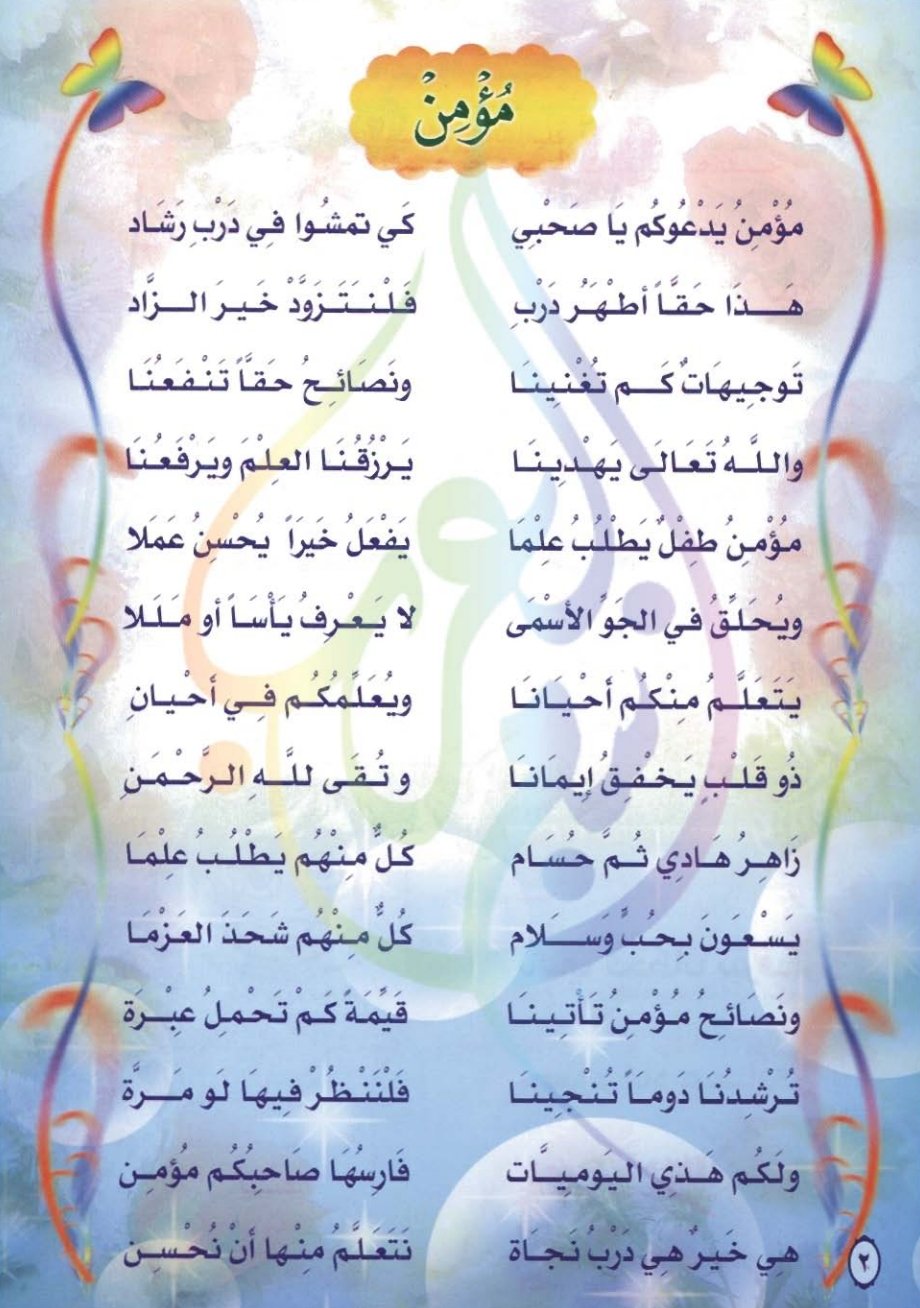 مُؤْمِنْ
مُؤْمِنُ يَدْعُوكُم يَا صَحْبِي كَي تمشُوا فِي دَرْبِ رَشَاد
هَـذَا حَقَّاً أطْهَرُ دَرْبِ فَلْنَتَزَوَّدْ خَيرَ الـزَّاد
تَوجِيهَاتٌ كَـم تُغْنِينَا ونَصَائِحُ حَقاً تَنْفَعُنَا
واللَّـهُ تَعَالَى يَهْدِينَا يَرْزُقُنَا العِلْمَ ويَرْفَعُنَا
مُؤْمِنُ طِفْلٌ يَطْلُبُ عِلْمَا يَفْعَلُ خَيرَاً يُحْسِنُ عَمَلا
ويُحَلِّقُ في الجَوِّ الأسْمَى لا يَعْرِفُ يَأْسَاً أو مَلَلا
يَتَعَلَّمُ مِنْكُم أحْيَانَا ويُعَلِّمُكُم فِي أحْيانِ
ذُو قَلْبٍ يَخْفِقُ إيمَانَا وتُقَى للَّـهِ الرَّحْمَنِ
زَاهِرُ هَادِي ثُمَّ حُسَام كُلٌّ مِنْهُم يَطْلُبُ عِلْمَا
يَسْعَونَ بِحُبٍّ وَسَلام كُلٌّ مِنْهُم شَحَذَ العَزْمَا
ونَصَائِحُ مُؤْمِنُ تَأْتِينَا قَيِّمَةً كَمْ تَحْمِلُ عِبْرَة
تُرْشِدُنَا دَومَاً تُنْجِينَا فَلْنَنْظُرْ فِيهَا لَو مَـرَّة
ولَكُم هَذِي اليَومِيَّات فَارِسُهَا صَاحِبُكُم مؤمن
هِي خَيرٌ هِي دَرْبُ نَجَاة نَتَعَلَّمُ مِنْها أنْ نُحْسِن
٢